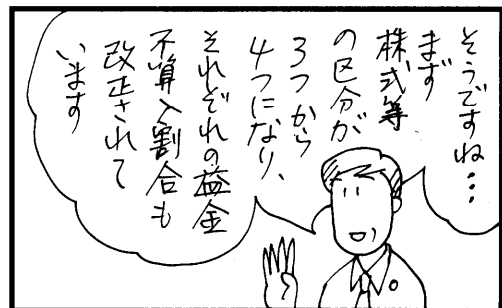 そうですね…
まず
株式等
の区分が
3つから
4つになり、
それぞれの益金
不算入割合も
改正されて
います